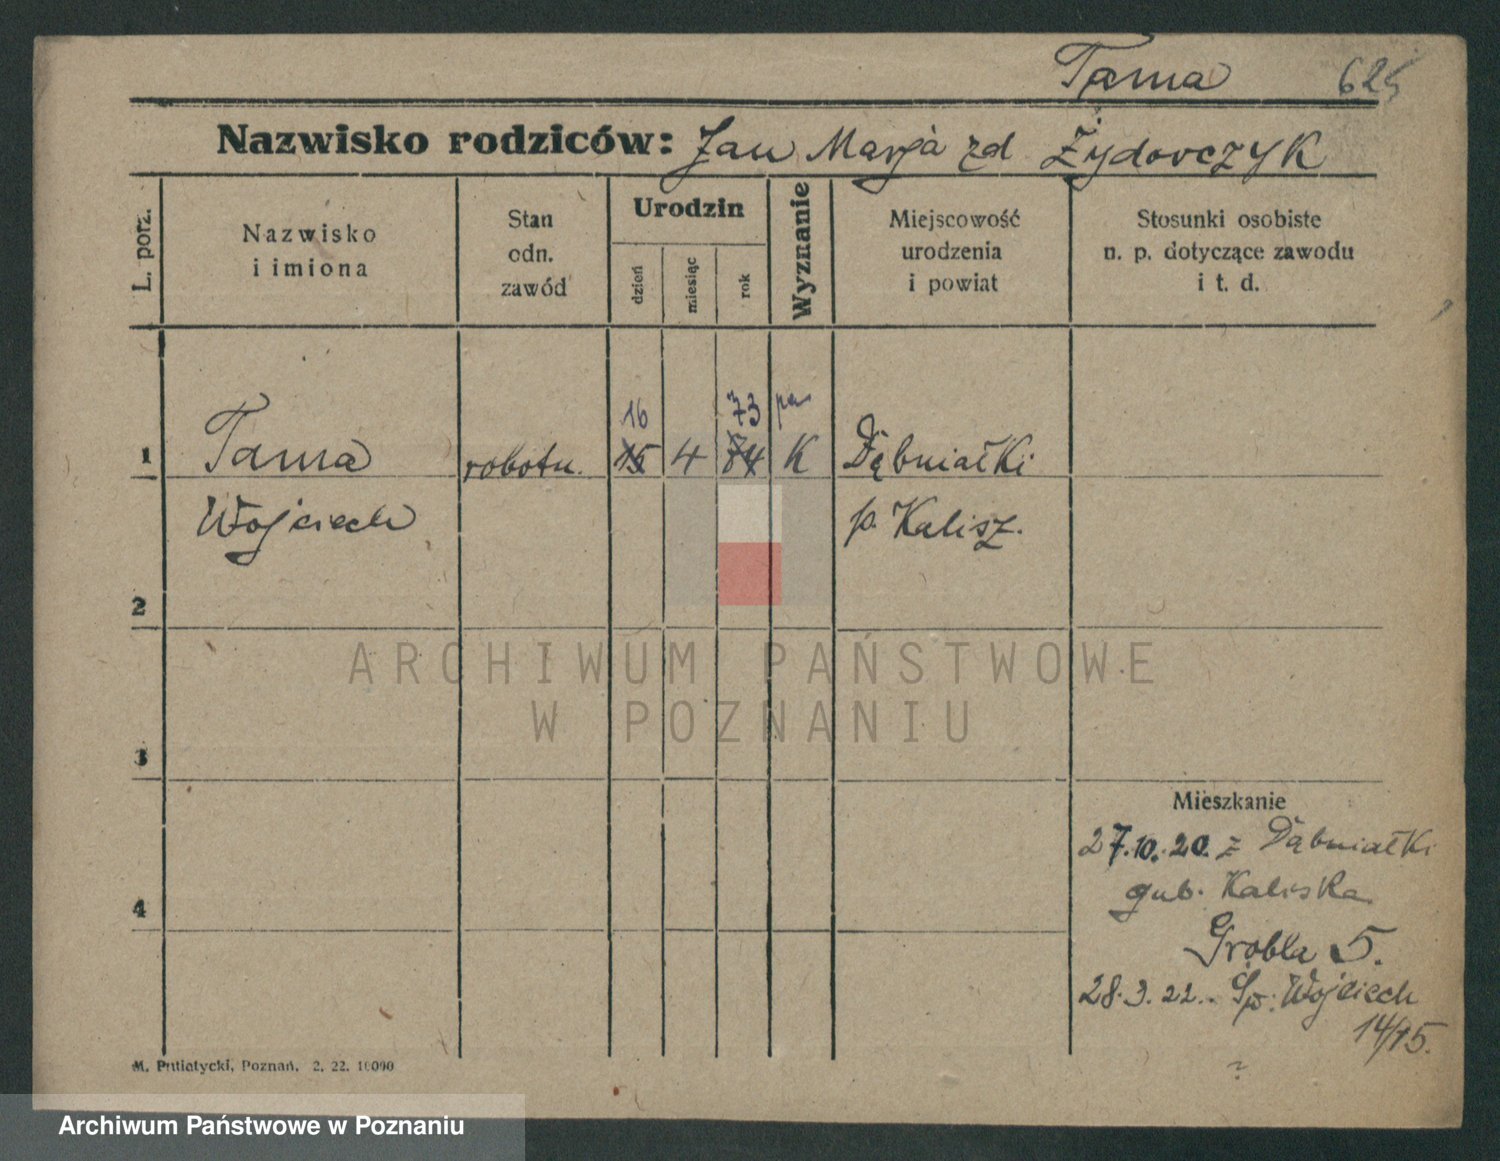 Tama 625
Nazwisko rodziców: Jan Marja zd Żydorczyk
L. porz.
Nazwisko
i imiona
Stan
odn.
zawód
Urodzin
dzień
miesiąc
rok
Wyznanie
Miejscowość
urodzenia
i powiat
Stosunki osobiste
n. p. dotyczące zawodu
i t. d.
16 73
1 Tama robotn. 15 4 K Dąbniałki
Wojciech p. Kalisz.
2
3
4
Mieszkanie
27.10.20. z Dąbniałki
gub. Kaliska
Grobla 5.
28.3.22. Św. Wojciech
14/15.
?
M. Putiatycki, Poznań. 2. 22. 10000
ARCHIWUM PAŃSTWOWE
W POZNANIU
Archiwum Państwowe w Poznaniu